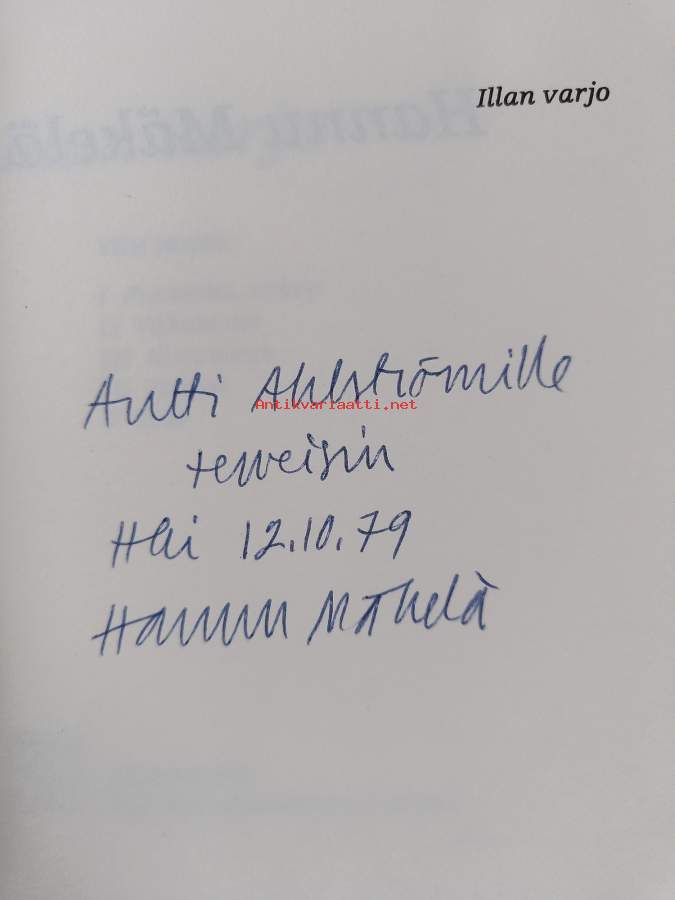 Illan varjo
Hannu Mäkelä
Antti Ahlströmille
Antikvariaatti.net
terveisin
Hki 12.10.79
Hannu Mäkelä